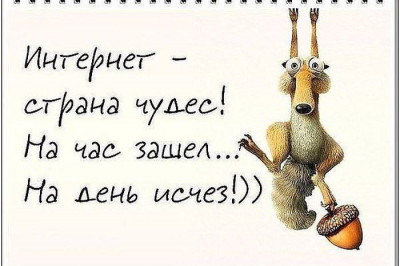 Интернет -
страна чудес!
На час зашел...
На день исчез!))